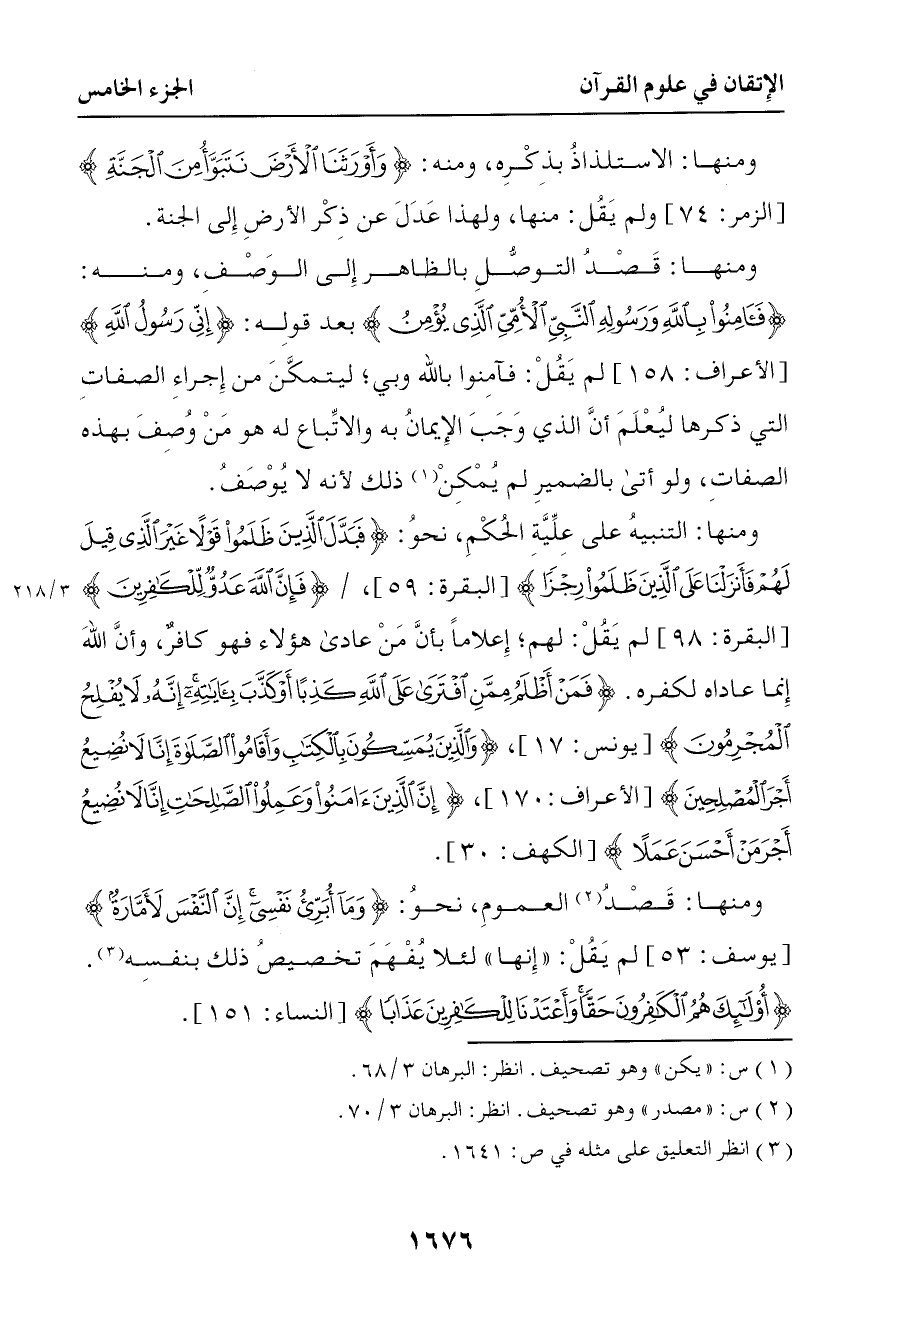 الإتقان في علوم القرآن
الجزء الخامس
ومنها: الاستلذاذُ بذكْره، ومنه: ﴿ وَأَوْرَثَنَا ٱلْأَرْضَ نَتَبَوَّأُ مِنَ ٱلْجَنَّةِ ﴾
[الزمر: ٧٤] ولم يَقُل: منها، ولهذا عَدَلَ عن ذكْر الأرض إلى الجنة.
ومنها: قَصْدُ التوصُّلِ بالظاهر إلى الوَصْف، ومنه:
﴿فَـَٔامِنُوا۟ بِٱللَّهِ وَرَسُولِهِ ٱلنَّبِىِّ ٱلْأُمِّىِّ ٱلَّذِى يُؤْمِنُ ﴾ بعد قوله: ﴿ إِنِّى رَسُولُ ٱللَّهِ ﴾
[الأعراف: ١٥٨] لم يَقُلْ: فآمنوا بالله وبي؛ ليتمكَّنَ من إجراء الصفات
التي ذكرها ليُعْلَمَ أنَّ الذي وَجَبَ الإيمانُ به والاتِّباع له هو مَنْ وُصفَ بهذه
الصفات، ولو أتىٰ بالضمير لم يُمْكنْ(١) ذلك لأنه لا يُوْصَفُ.
ومنها: التنبيهُ على علِّيَّة الحُكْم، نحوُ: ﴿ فَبَدَّلَ ٱلَّذِينَ ظَلَمُوا۟ قَوْلًا غَيْرَ ٱلَّذِى قِيلَ
لَهُمْ فَأَنزَلْنَا عَلَى ٱلَّذِينَ ظَلَمُوا۟ رِجْزًا ﴾ [البقرة: ٥٩]، / ﴿ فَإِنَّ ٱللَّهَ عَدُوٌّ لِّلْكَـٰفِرِينَ ﴾ ٢١٨/٣
[البقرة: ٩٨] لم يَقُلْ: لهم؛ إعلاماً بأنَّ مَنْ عادىٰ هؤلاء فهو كافرٌ، وأنَّ اللهَ
إنما عاداه لكفره. ﴿ فَمَنْ أَظْلَمُ مِمَّنِ ٱفْتَرَىٰ عَلَى ٱللَّهِ كَذِبًا أَوْ كَذَّبَ بِـَٔايَـٰتِهِۦٓ ۚ إِنَّهُۥ لَا يُفْلِحُ
ٱلْمُجْرِمُونَ ﴾ [يونس: ١٧]، ﴿ وَٱلَّذِينَ يُمَسِّكُونَ بِٱلْكِتَـٰبِ وَأَقَامُوا۟ ٱلصَّلَوٰةَ إِنَّا لَا نُضِيعُ
أَجْرَ ٱلْمُصْلِحِينَ ﴾ [الأعراف: ١٧٠]، ﴿ إِنَّ ٱلَّذِينَ ءَامَنُوا۟ وَعَمِلُوا۟ ٱلصَّـٰلِحَـٰتِ إِنَّا لَا نُضِيعُ
أَجْرَ مَنْ أَحْسَنَ عَمَلًا ﴾ [الكهف: ٣٠].
ومنها: قَصْدُ(٢) العموم، نحوُ: ﴿ وَمَآ أُبَرِّئُ نَفْسِىٓ ۚ إِنَّ ٱلنَّفْسَ لَأَمَّارَةٌۢ ﴾
[يوسف: ٥٣] لم يَقُلْ: «إنها» لئلا يُفْهَمَ تخصيصُ ذلك بنفسه(٣).
﴿ أُو۟لَـٰٓئِكَ هُمُ ٱلْكَـٰفِرُونَ حَقًّا ۚ وَأَعْتَدْنَا لِلْكَـٰفِرِينَ عَذَابًا ﴾ [النساء: ١٥١].
(١) س: «يكن» وهو تصحيف. انظر: البرهان ٦٨/٣.
(٢) س: «مصدر» وهو تصحيف. انظر: البرهان ٧٠/٣.
(٣) انظر التعليق على مثله في ص: ١٦٤١.
١٦٧٦